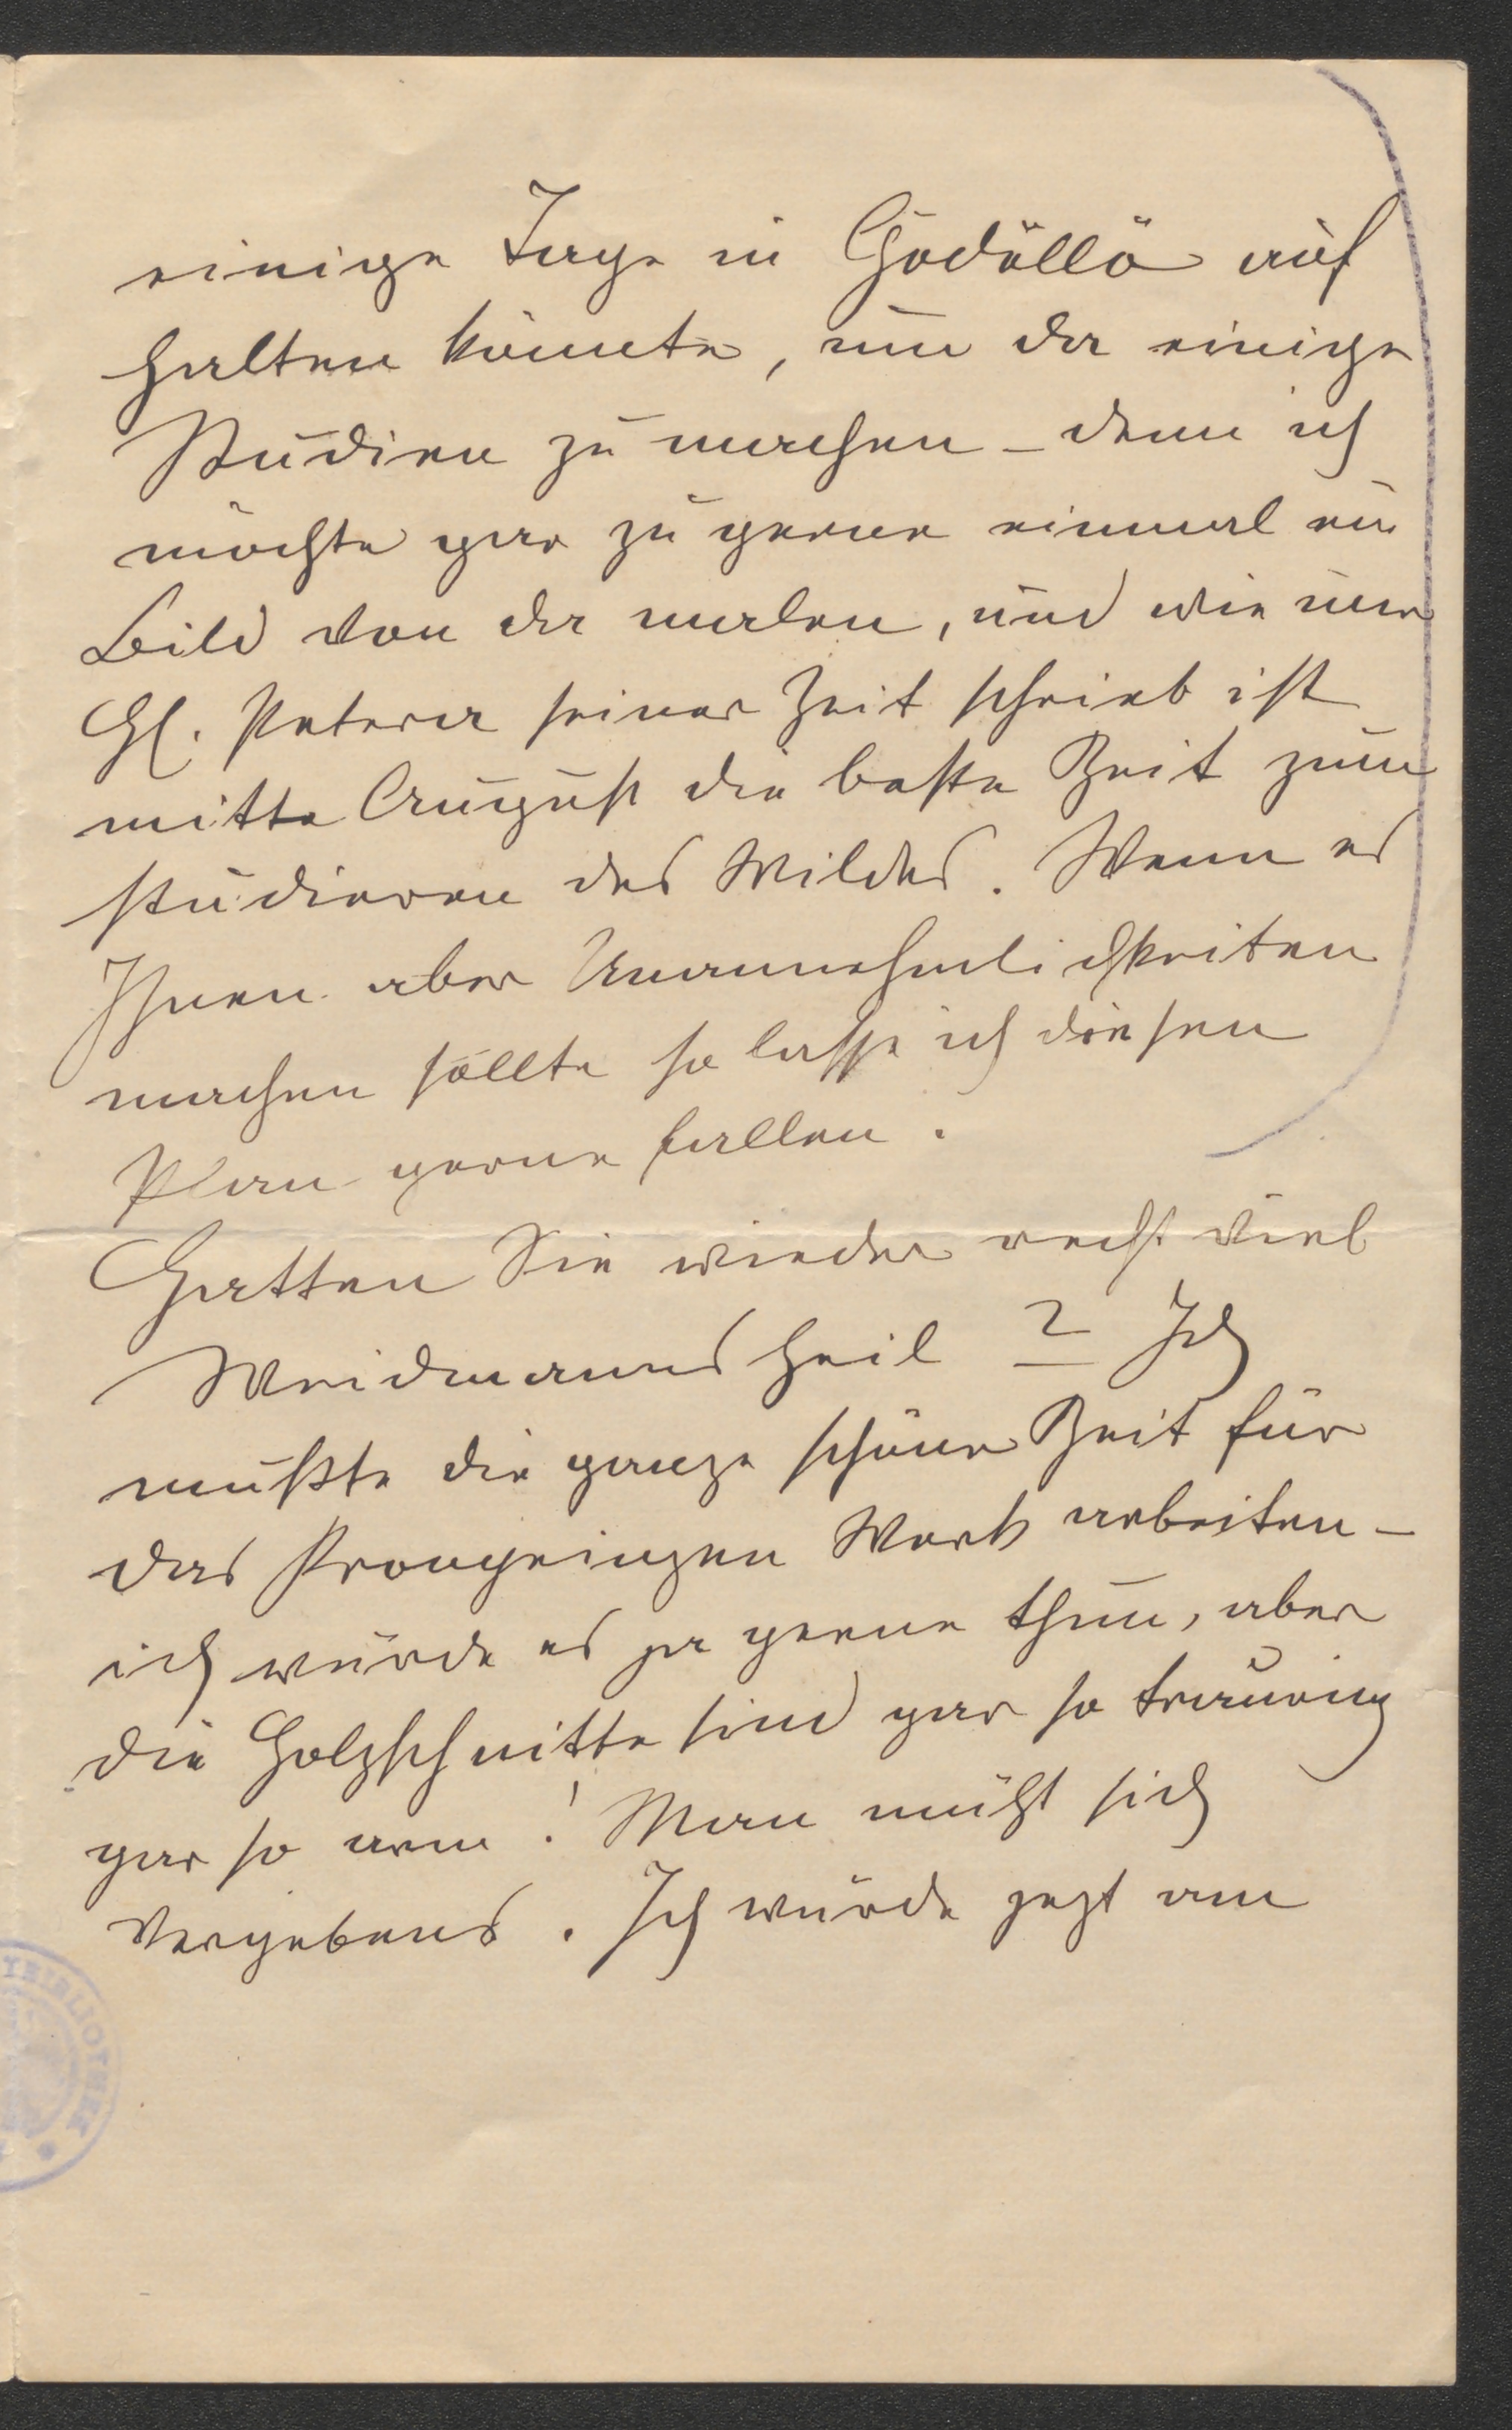 einige Tage in Gödöllö auf
halten könnte, um da einige
Studien zu machen – denn ich
möchte gar zu gerne einmal ein
Bild von da malen, und wie mir
H. Petera seiner Zeit schrieb ist
mitte August die beste Zeit zum
studieren des Wildes. Wenn es
Ihnen aber Unannehmlichkeiten
machen sollte so lasse ich diesen
Plan gerne fallen.
Hatten Sie wieder recht viel
Weidmanns heil ? Ich
mußte die ganze schöne Zeit für
das Kronprinzen Werk arbeiten –
ich würde es ja gerne thun, aber
die Holzschnitte sind gar so traurig
gar so arm! Man müht sich
vergebens. Ich würde jezt am
BIBLIOTHEK